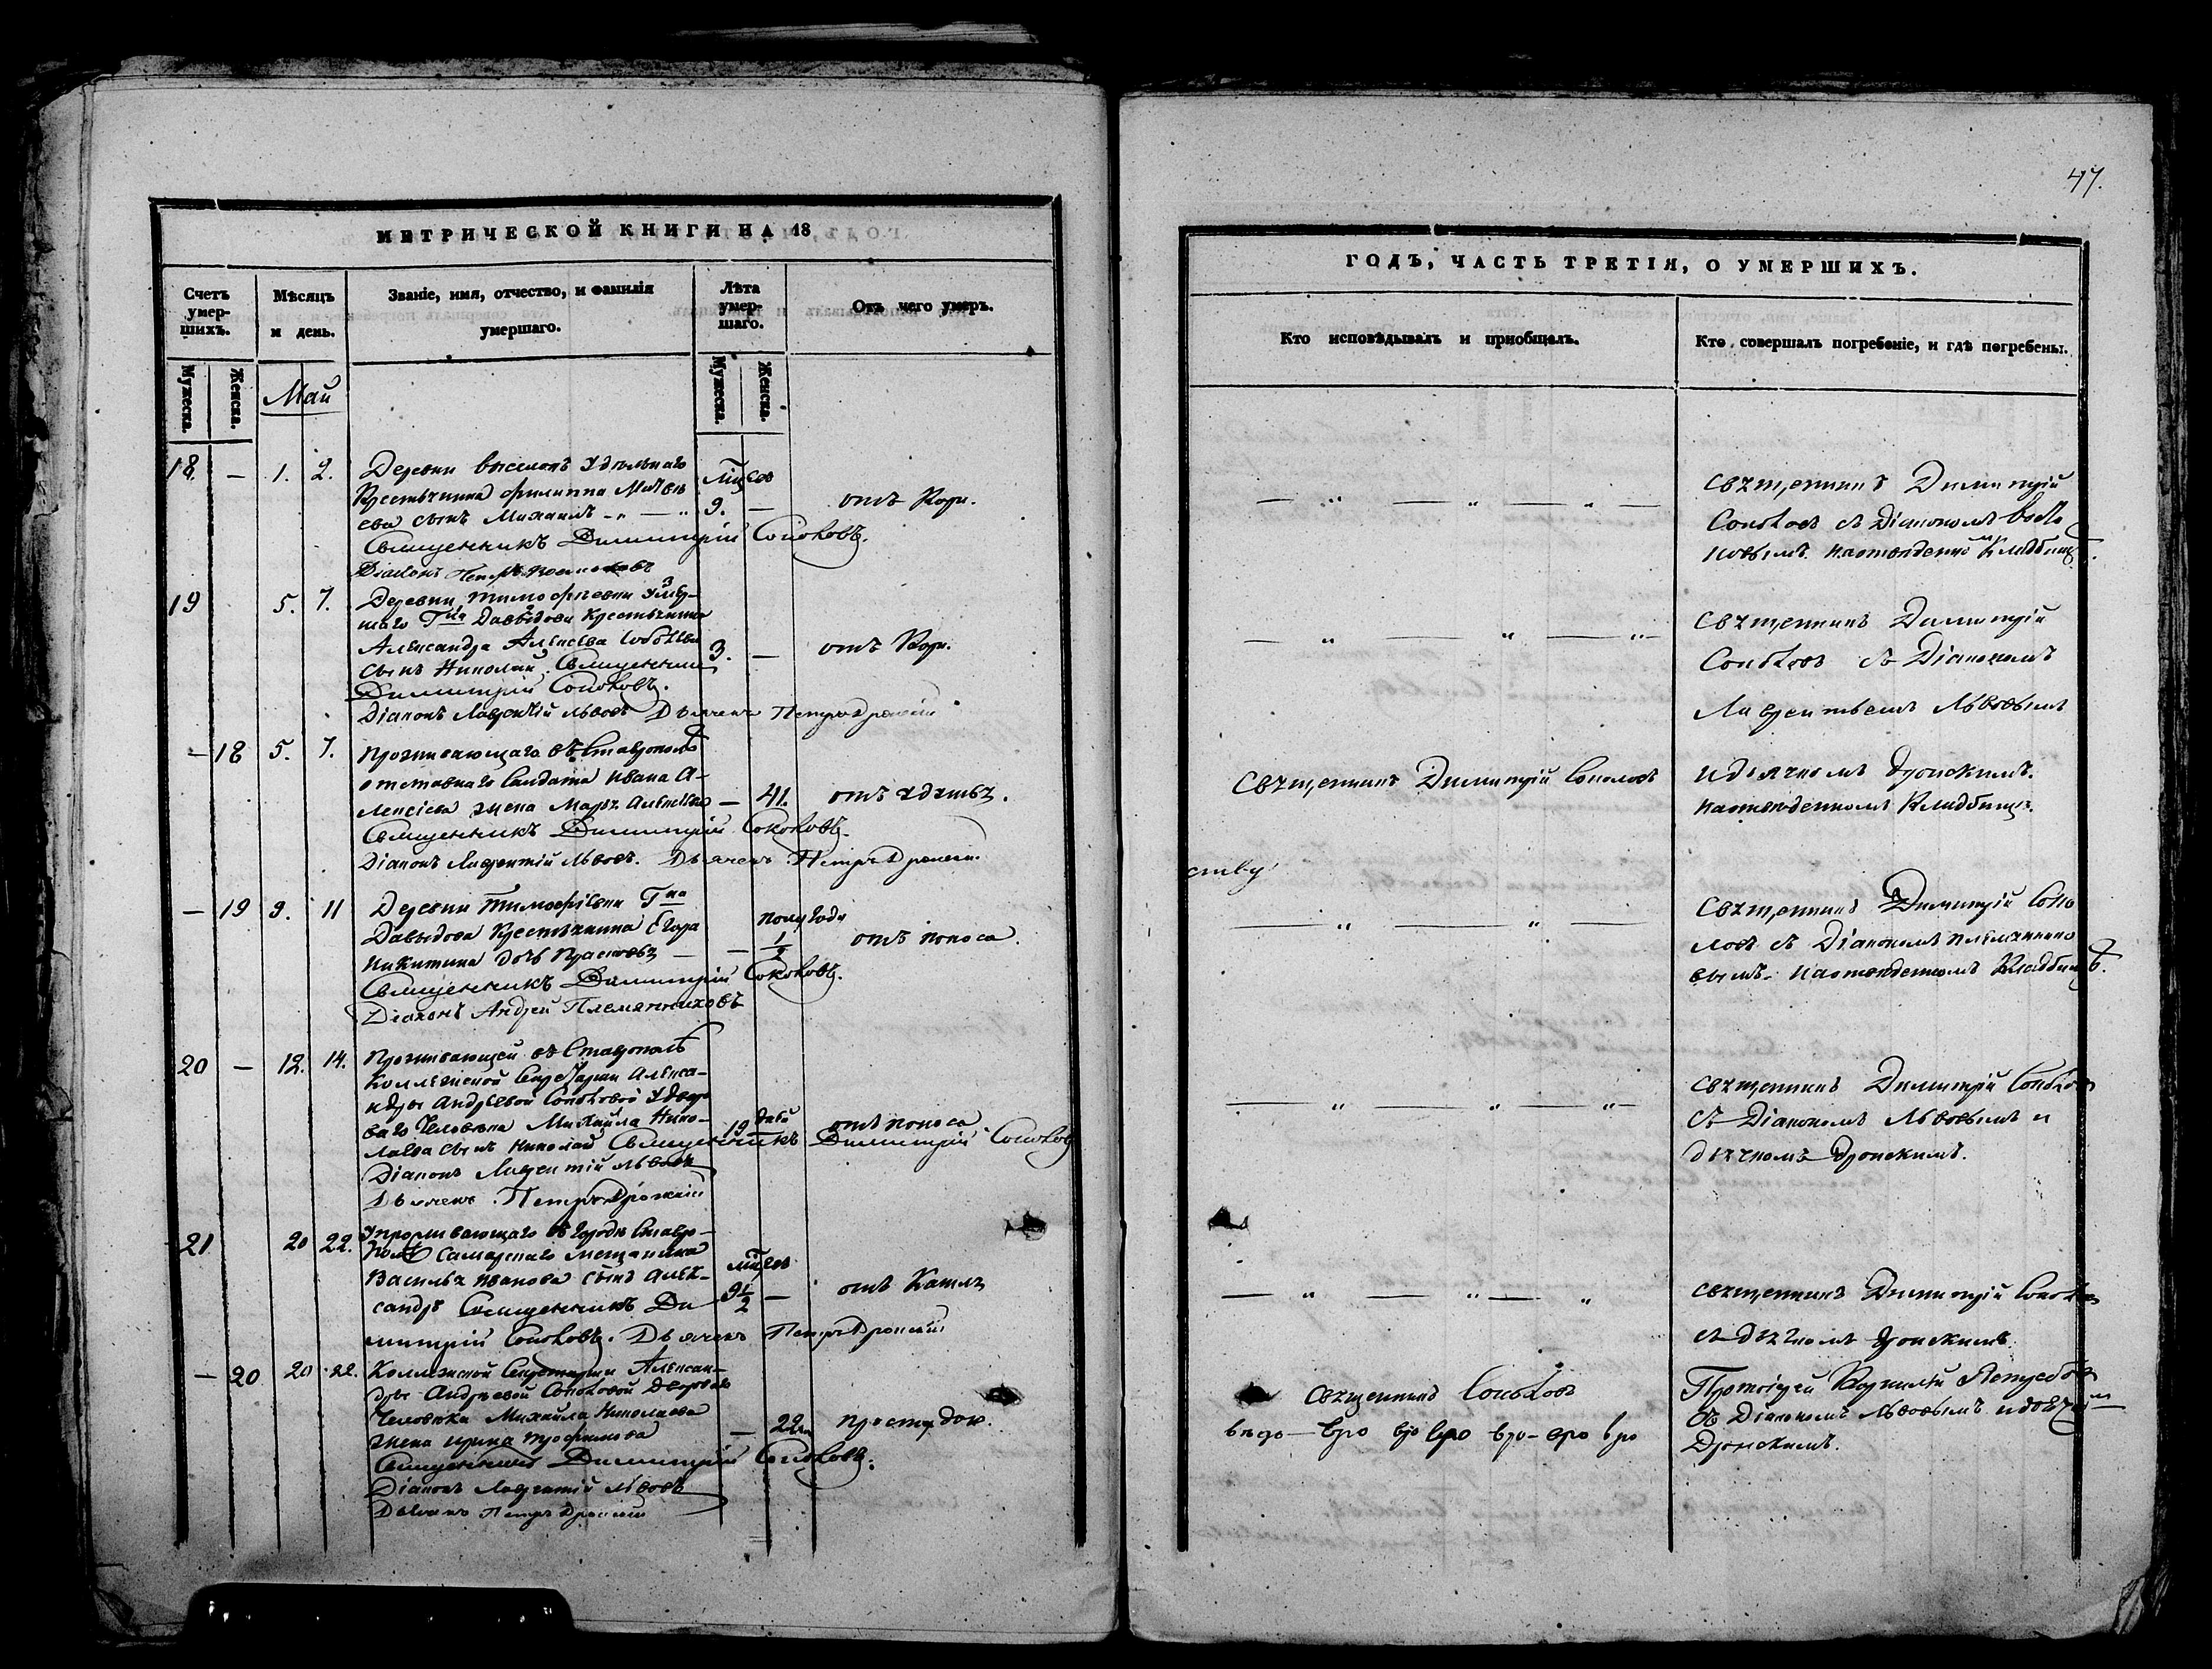 47.
МЕТРИЧЕСКОЙ КНИГИ НА 18
Счетъ умер-шихъ.
Мѣсяцъ и день.
Званіе, имя, отчество, и фамилія умершаго.
Лѣта умер-шаго.
Отъ чего умеръ.
Мужеска.
Женска.
Май
Мужеска.
Женска.
18 — 1. 2. Деревни Выселокъ Удѣльнаго
Крестьянина Филиппа Матвѣ
ева сынъ Михаилъ 9. — отъ Кори.
Священникъ Димитрій Соколовъ.
Діаконъ Петръ
19 5. 7. Деревни Тимофѣевки
Г-на Давыдова Крестьянина
Александра Алексѣева
сынъ Николай. Священникъ 3. — отъ Кори.
Димитрій Соколовъ.
Діаконъ Лаврентій Львовъ Дьячекъ Петръ Дронскій
— 18 5. 7. Проживающаго въ Ставрополѣ
отставнаго Солдата Ивана А-
лексѣева жена Марѳа Алексѣева — 41.
Священникъ Димитрій Соколовъ.
Діаконъ Лаврентій Львовъ. Дьячекъ Петръ Дронскій
— 19 9. 11 Деревни Тимофѣевки Г-на
Давыдова Крестьянина Егора полугода
Никитина дочь — 1/2 отъ поноса.
Священникъ Димитрій Соколовъ.
Діаконъ Андрей Племянниковъ
20 — 12. 14. Проживающей въ Ставрополѣ
Коллежской Секретарши Алекса-
ндры Андреевой Соколовой
Человѣка Михайла Нико-
лаева сынъ Николай 19 дней отъ поноса
Священникъ Димитрій Соколовъ
Діаконъ Лаврентій Львовъ
Дьячекъ Петръ Дронскій
21 20 22. У проживающаго въ городѣ Ставро-
полѣ Самарскаго мещанина
Василья Иванова сынъ Алек-
сандръ Священникъ Ди 9 1/2 — отъ Кашля
митрій Соколовъ. Дьячекъ Петръ Дронскій
— 20 20 22. Коллежской Секретарши Алексан-
дры Андреевой Соколовой Дворов
Человѣка Михайла Николаева
жена Ирина Трофимова — 22 простудою.
Священникъ Димитрій Соколовъ.
Діаконъ Лаврентій Львовъ
Дьячекъ Петръ Дронскій
ГОДЪ, ЧАСТЬ ТРЕТІЯ, О УМЕРШИХЪ.
Кто исповѣдывалъ и пріобщалъ.
Кто совершалъ погребеніе, и гдѣ погребены.
Священникъ Димитрій
Соколовъ съ Діакономъ
Священникъ Димитрій
Соколовъ съ Діакономъ
Лаврентьемъ Львовымъ
Священникъ Димитрій Соколовъ
и дьячкомъ Дронскимъ.
Священникъ Димитрій Соко
ловъ съ Діакономъ Племяннико
вымъ.
Священникъ Димитрій Соколовъ
съ Діакономъ Львовымъ и
дьячкомъ Дронскимъ.
Священникъ Димитрій Соколовъ
съ дьячкомъ Дронскимъ
Священникъ Соколовъ
Протоіерей
съ Діакономъ Львовымъ
Дронскимъ.